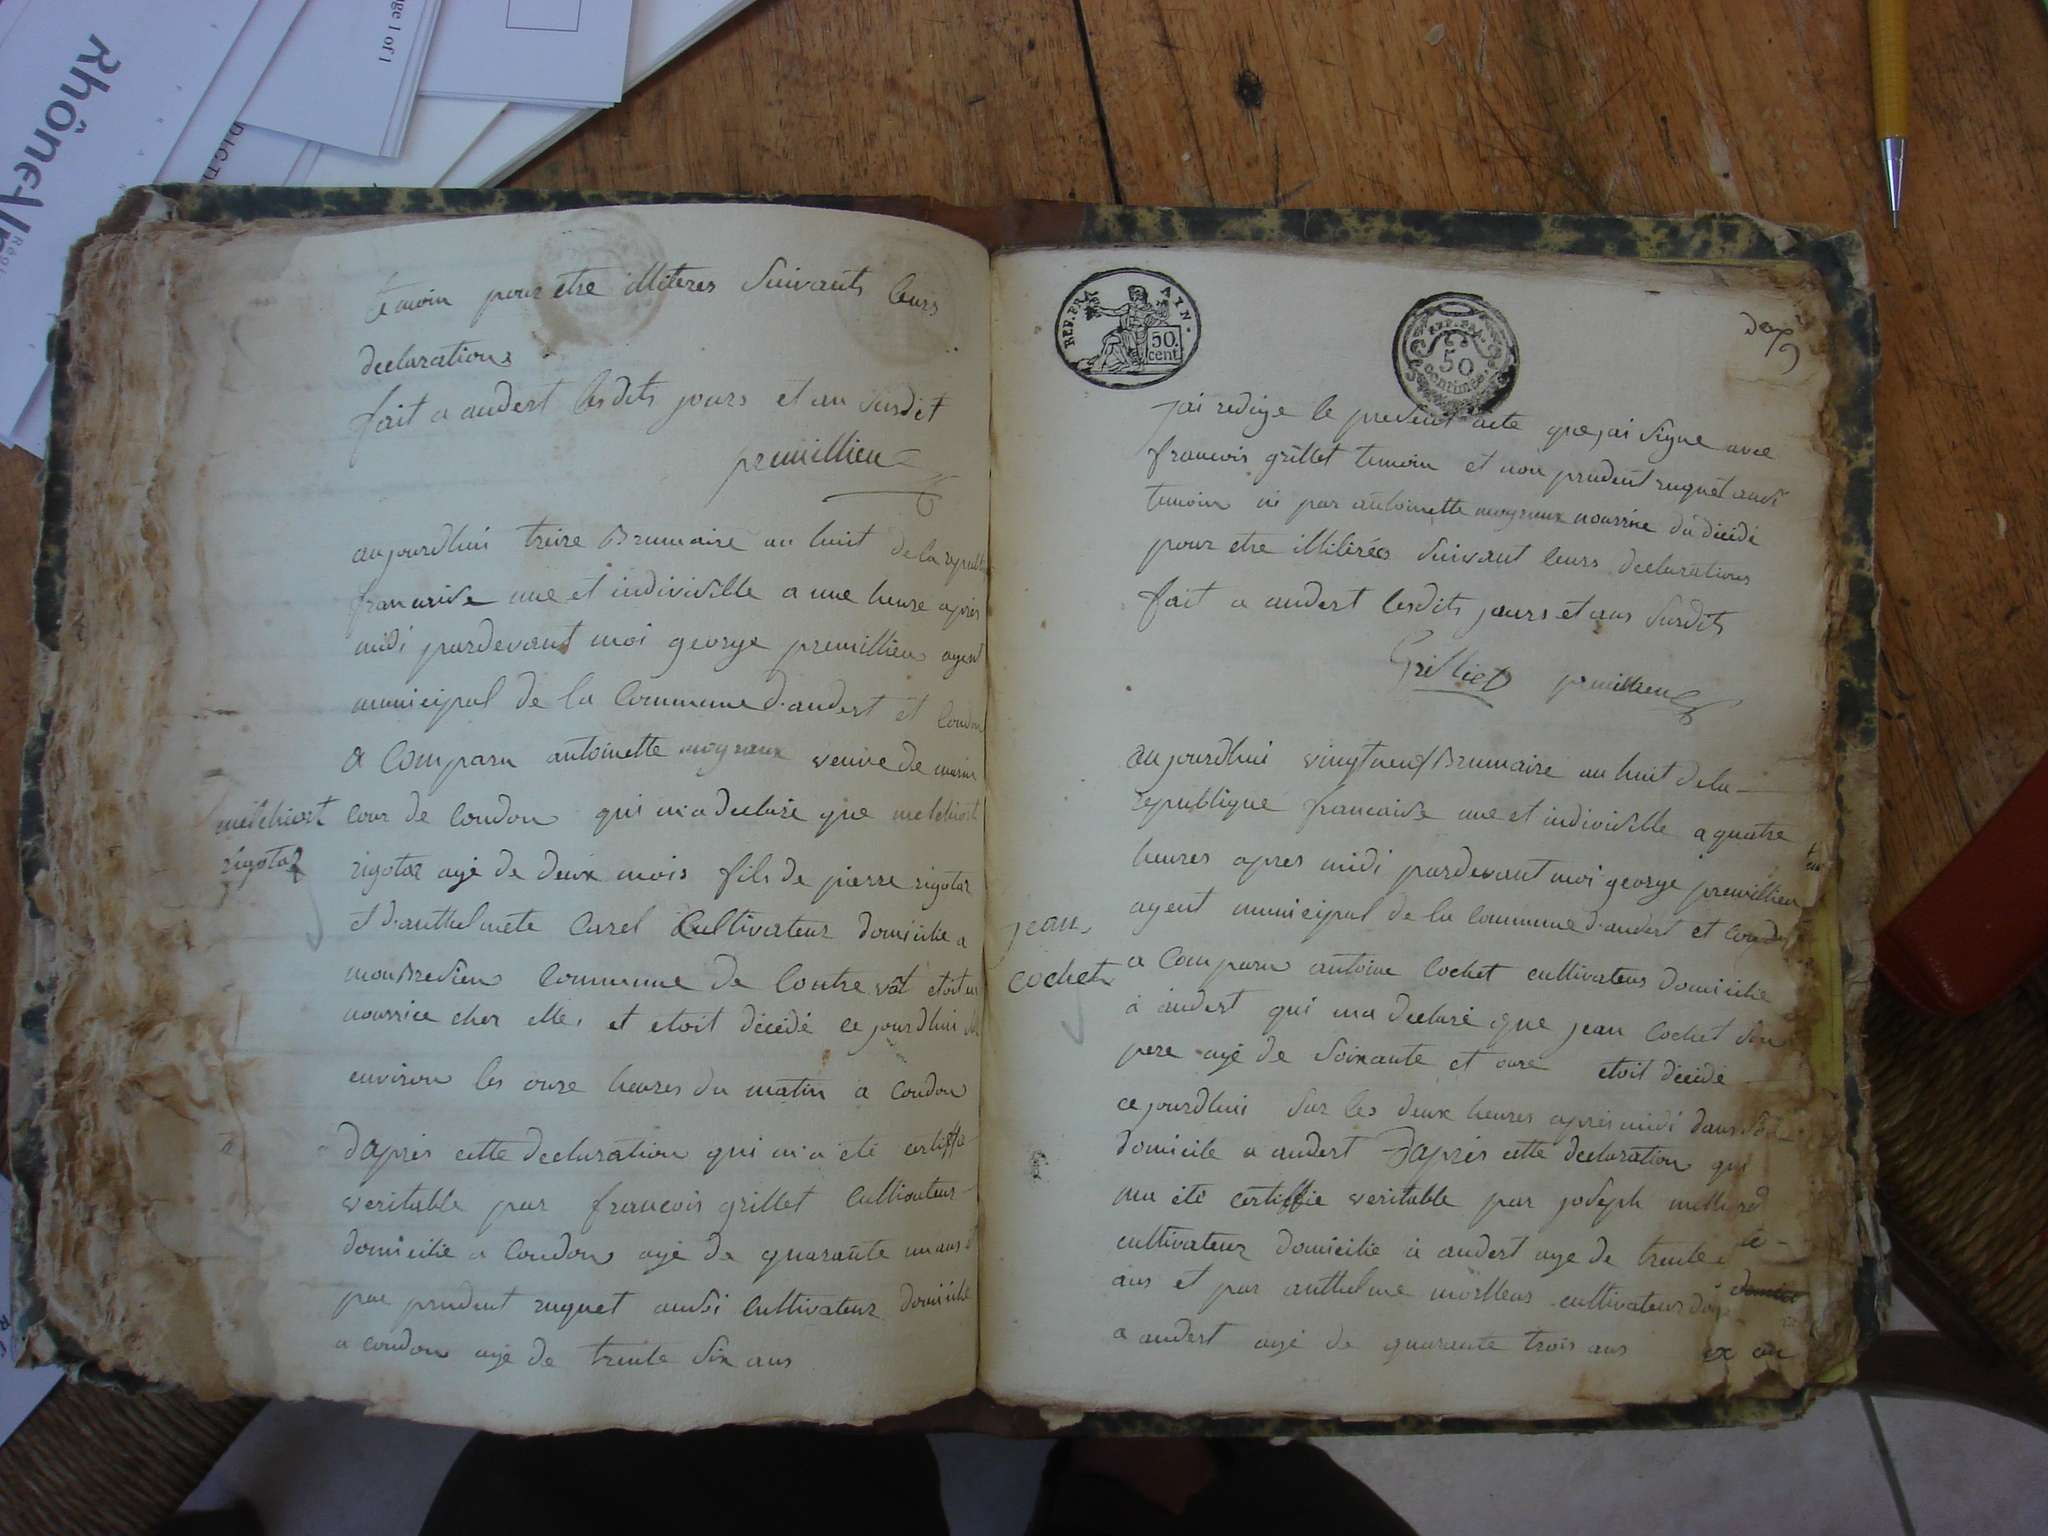 Rhône
age 1 of 1
temoin pour etre illiteres suivants leurs
declarations
fait a andert lesdits jours et an susdit
premillieu
aujourdhui treize Brumaire an huit de la republi
francaise une et indivisible a une heure apres
midi pardevant moi george premillieu agent
municipal de la Commune d'andert et Condon
a Comparu antoinette veuve de marin
Cour de Condon qui m'a declaré que melchiort
melchiort
rigotaz
rigotaz agé de deux mois fils de pierre rigotaz
et d'anthelmete Carrel Cultivateur domicilié a
monbredieu Commune de Contrevot etoit en
nourrice chez elle, et etoit décédé ce jourdhui
environ les onze heures du matin a Condon
Dapres cette declaration qui m'a été certiffié
veritable par francois grillet Cultivateur
domicilié a Condon agé de quarante un ans et
par prudent ruquet aussi Cultivateur domicilié
a condon agé de trente six ans
REP. FRA.
50. cent.
REP. FRA.
50
centimes
jai redige le present acte que jai signe avec
francois grillet temoin et non prudent ruquet aussi
temoin ni par antoinette nourrice du décédé
pour etre illiterés suivant leurs declarations
fait a andert lesdits jours et ans susdits
Grilliet premillieu
aujourdhui vingt neuf Brumaire an huit de la
republique francaise une et indivisible a quatre
heures apres midi pardevant moi george premillieu
agent municipal de la Commune d'andert et Condon
jean
cochet
a Comparu antoine Cochet cultivateur domicilié
a andert qui m'a declaré que jean Cochet son
pere agé de soixante et onze etoit décédé
ce jourdhui sur les deux heures apres midi dans son
domicile a andert Dapres cette declaration qui
m'a été certiffie veritable par joseph
cultivateur domicilié a andert age de trente
ans et par anthelme cultivateur
a andert agé de quarante trois ans